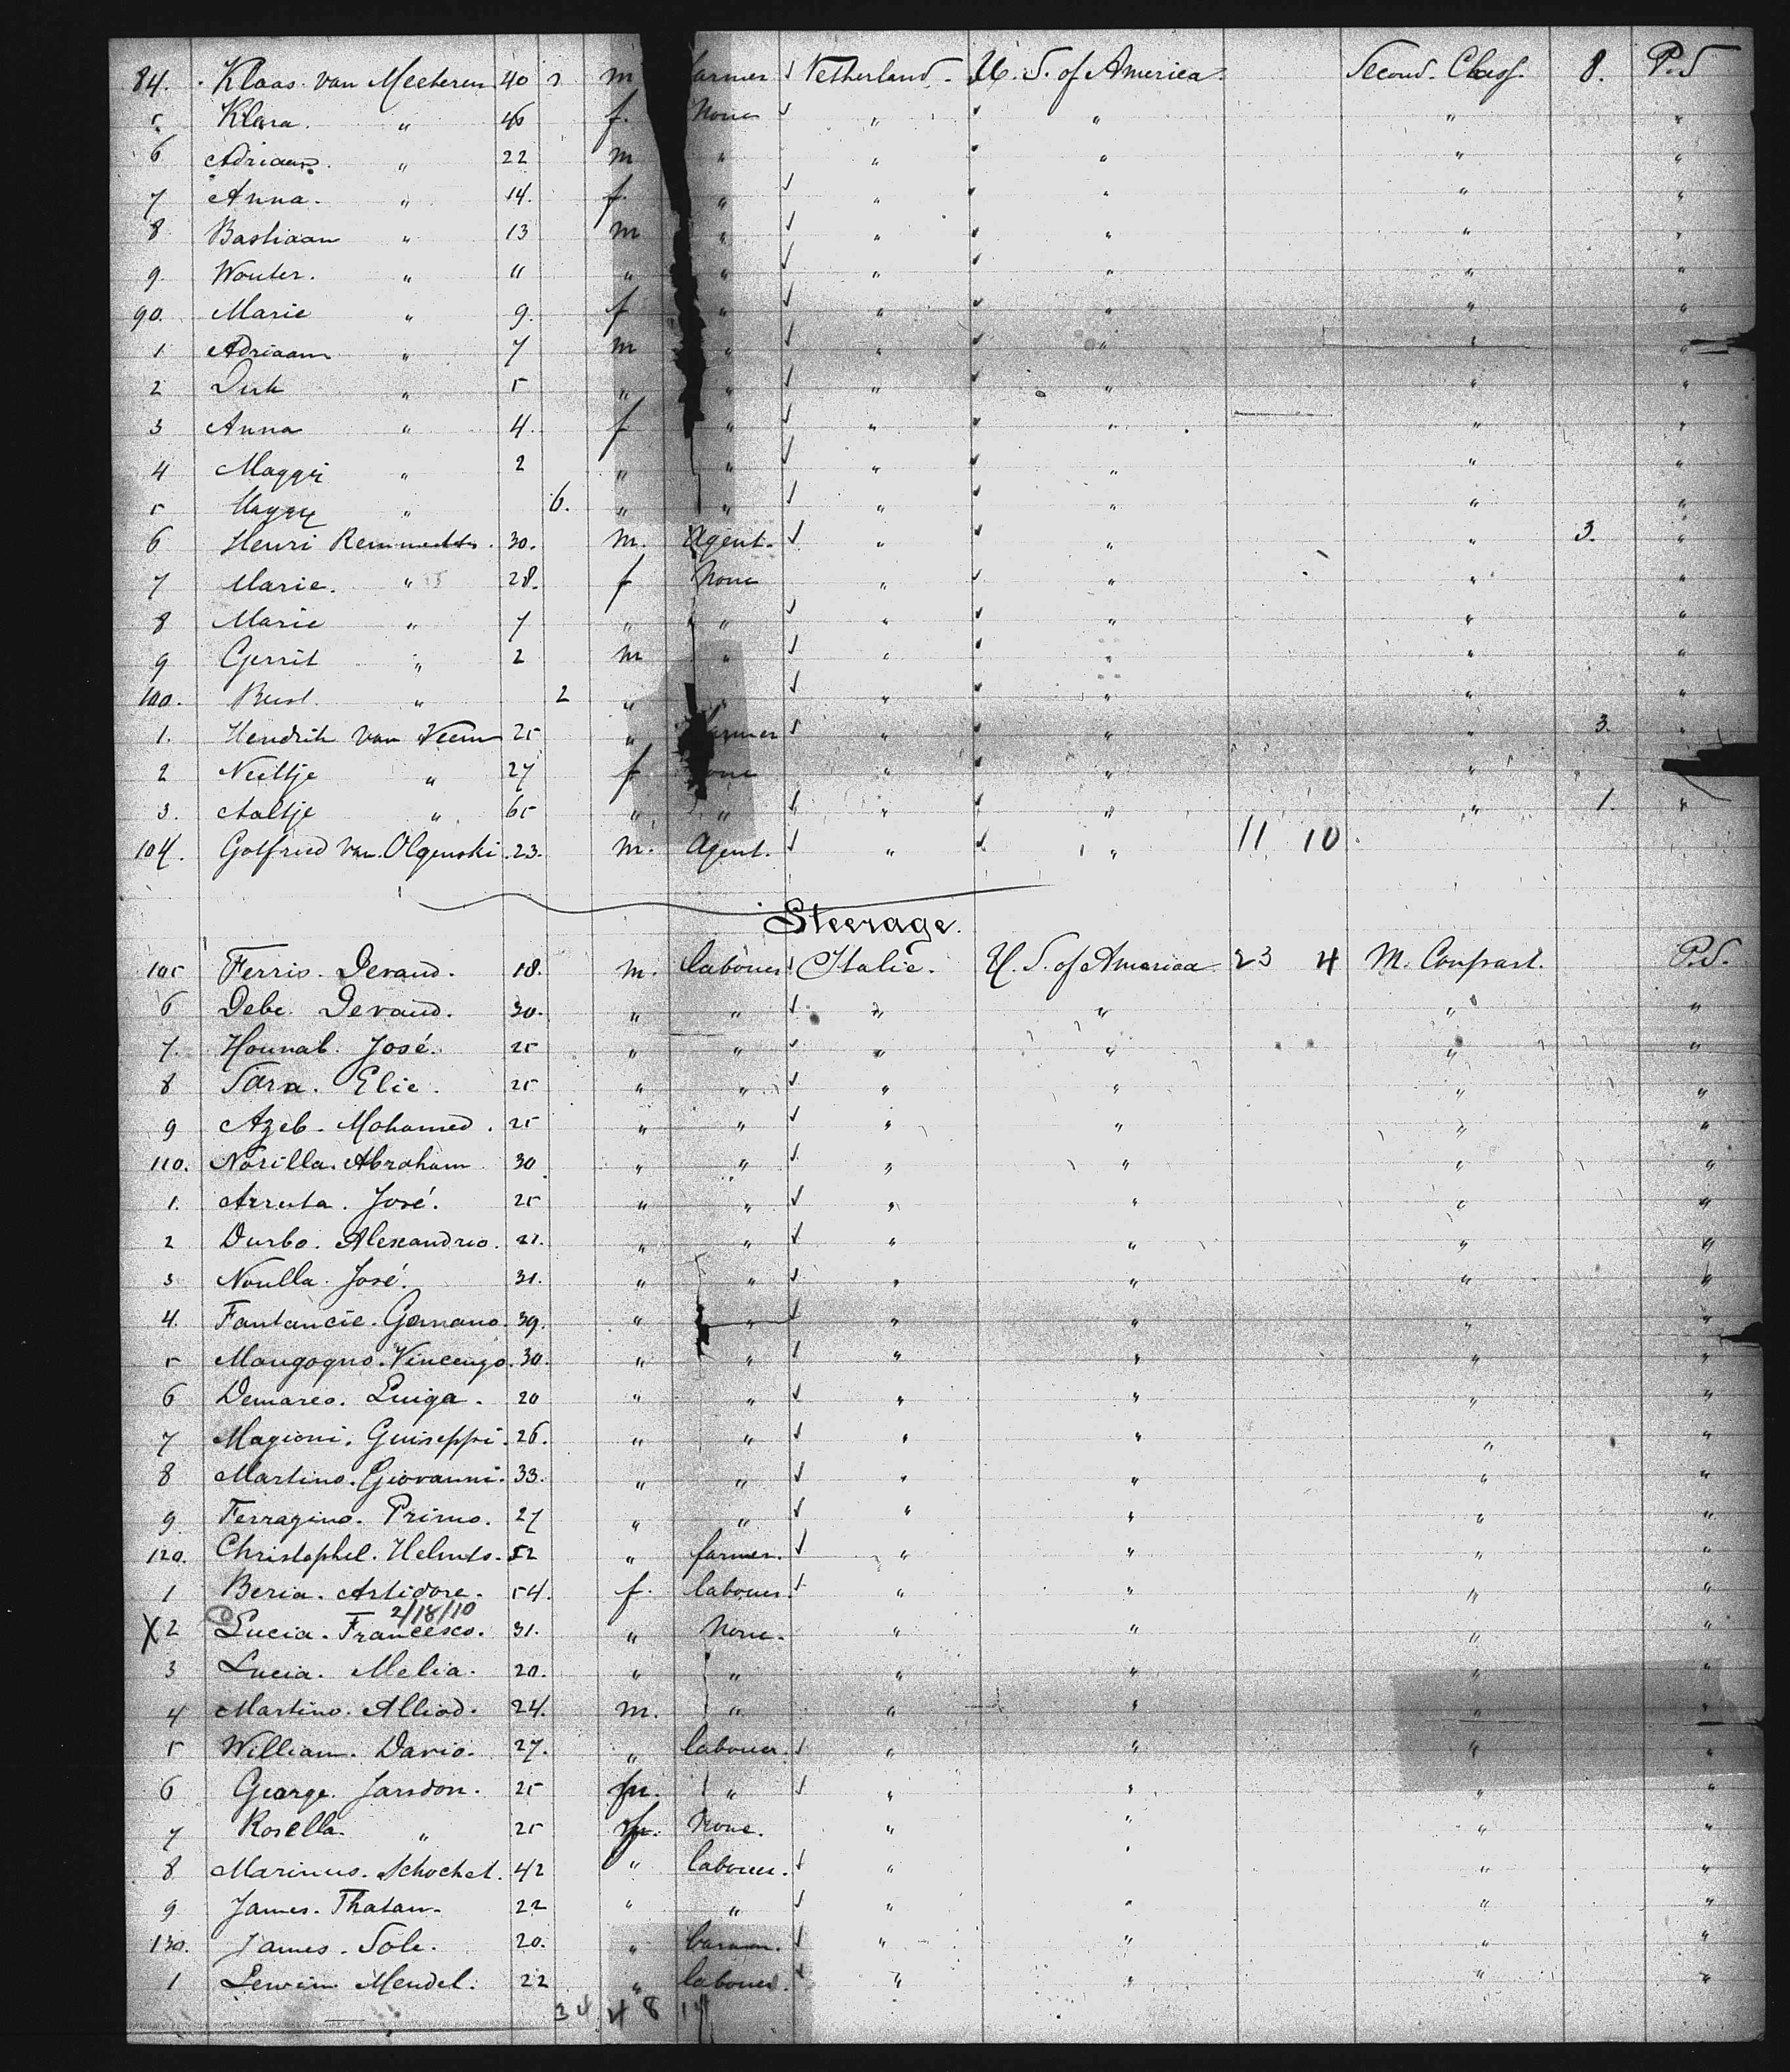 84. Klaas van Meeteren 40 m farmer Netherland. U. S. of America. Second Class. 8. P.S
5. Klara. " 46 f. None " " " "
6 Adriaan. " 22 m " " " " "
7 Anna. " 14. f. " " " " "
8 Bastiaan " 13 m " " " " "
9. Wouter. " 11 " " " " " "
90. Marie " 9. f " " " " "
1 Adriaan " 7 m " " " " "
2 Dirk " 5 " " " " " "
3 Anna " 4. f " " " " "
4 Maggi " 2 " " " " " "
5 " 6. " " " " " "
6 Henri 30. m. Agent. " " " 3. "
7 Marie. " 28. f None " " " "
8 Marie " 7 " " " " " "
9 Gerrit " 2 m " " " " "
100. " 2 " " " " " "
1. Hendrik van Veen 25 " farmer " " " 3. "
2 Neeltje " 27 f None " " " "
3. Aaltje " 65 " " " " " 1. "
104. Gotfried van Olgenski. 23. m. Agent. " " 11 10
Steerage.
105 Ferris. Devaud. 18. m. labouer Italie. U. S. of America. 23 4 M. Compart. P.S.
6 Debe. Devaud. 30. " " " " " "
7. Hounab. José. 25 " " " " " "
8 Sara. Elie. 25 " " " " " "
9 Azeb. Mohamed. 25 " " " " " "
110. Norilla. Abraham 30 " " " " " "
1. Arruta. José. 25 " " " " " "
2 Durbo. Alexandrio. 21. " " " " " "
3 Noulla. José. 31. " " " " " "
4. Fantancie. Gernano. 39. " " " " " "
5 Mangogno. Vincenzo. 30. " " " " " "
6 Demarco. Luiga. 20 " " " " " "
7 Magioni. Guiseppi. 26. " " " " " "
8 Martino. Giovanni. 33. " " " " " "
9. Ferragino. Primo. 27 " " " " " "
120. Christophel. Helmts. 52 " farmer. " " " "
1 Beria. Artidore. 54. f. labouer. " " " "
2/18/10
X 2 Lucia. Francesco. 31. " None. " " " "
3 Lucia. Melia. 20. " " " " " "
4 Martino. Alliod. 24. m. " " " " "
5 William. Davio. 27. " labouer. " " " "
6 George. Jansdon. 25 m. " " " " "
7 Rosella. " 25 f. None. " " " "
8 Marinus. Schochet. 42 " labouer. " " " "
9 James. Thatan. 22 " " " " " "
130. James. Sole. 20. " " " " "
1 Lewin Mendel. 22 " labouer. " " " "
34 48